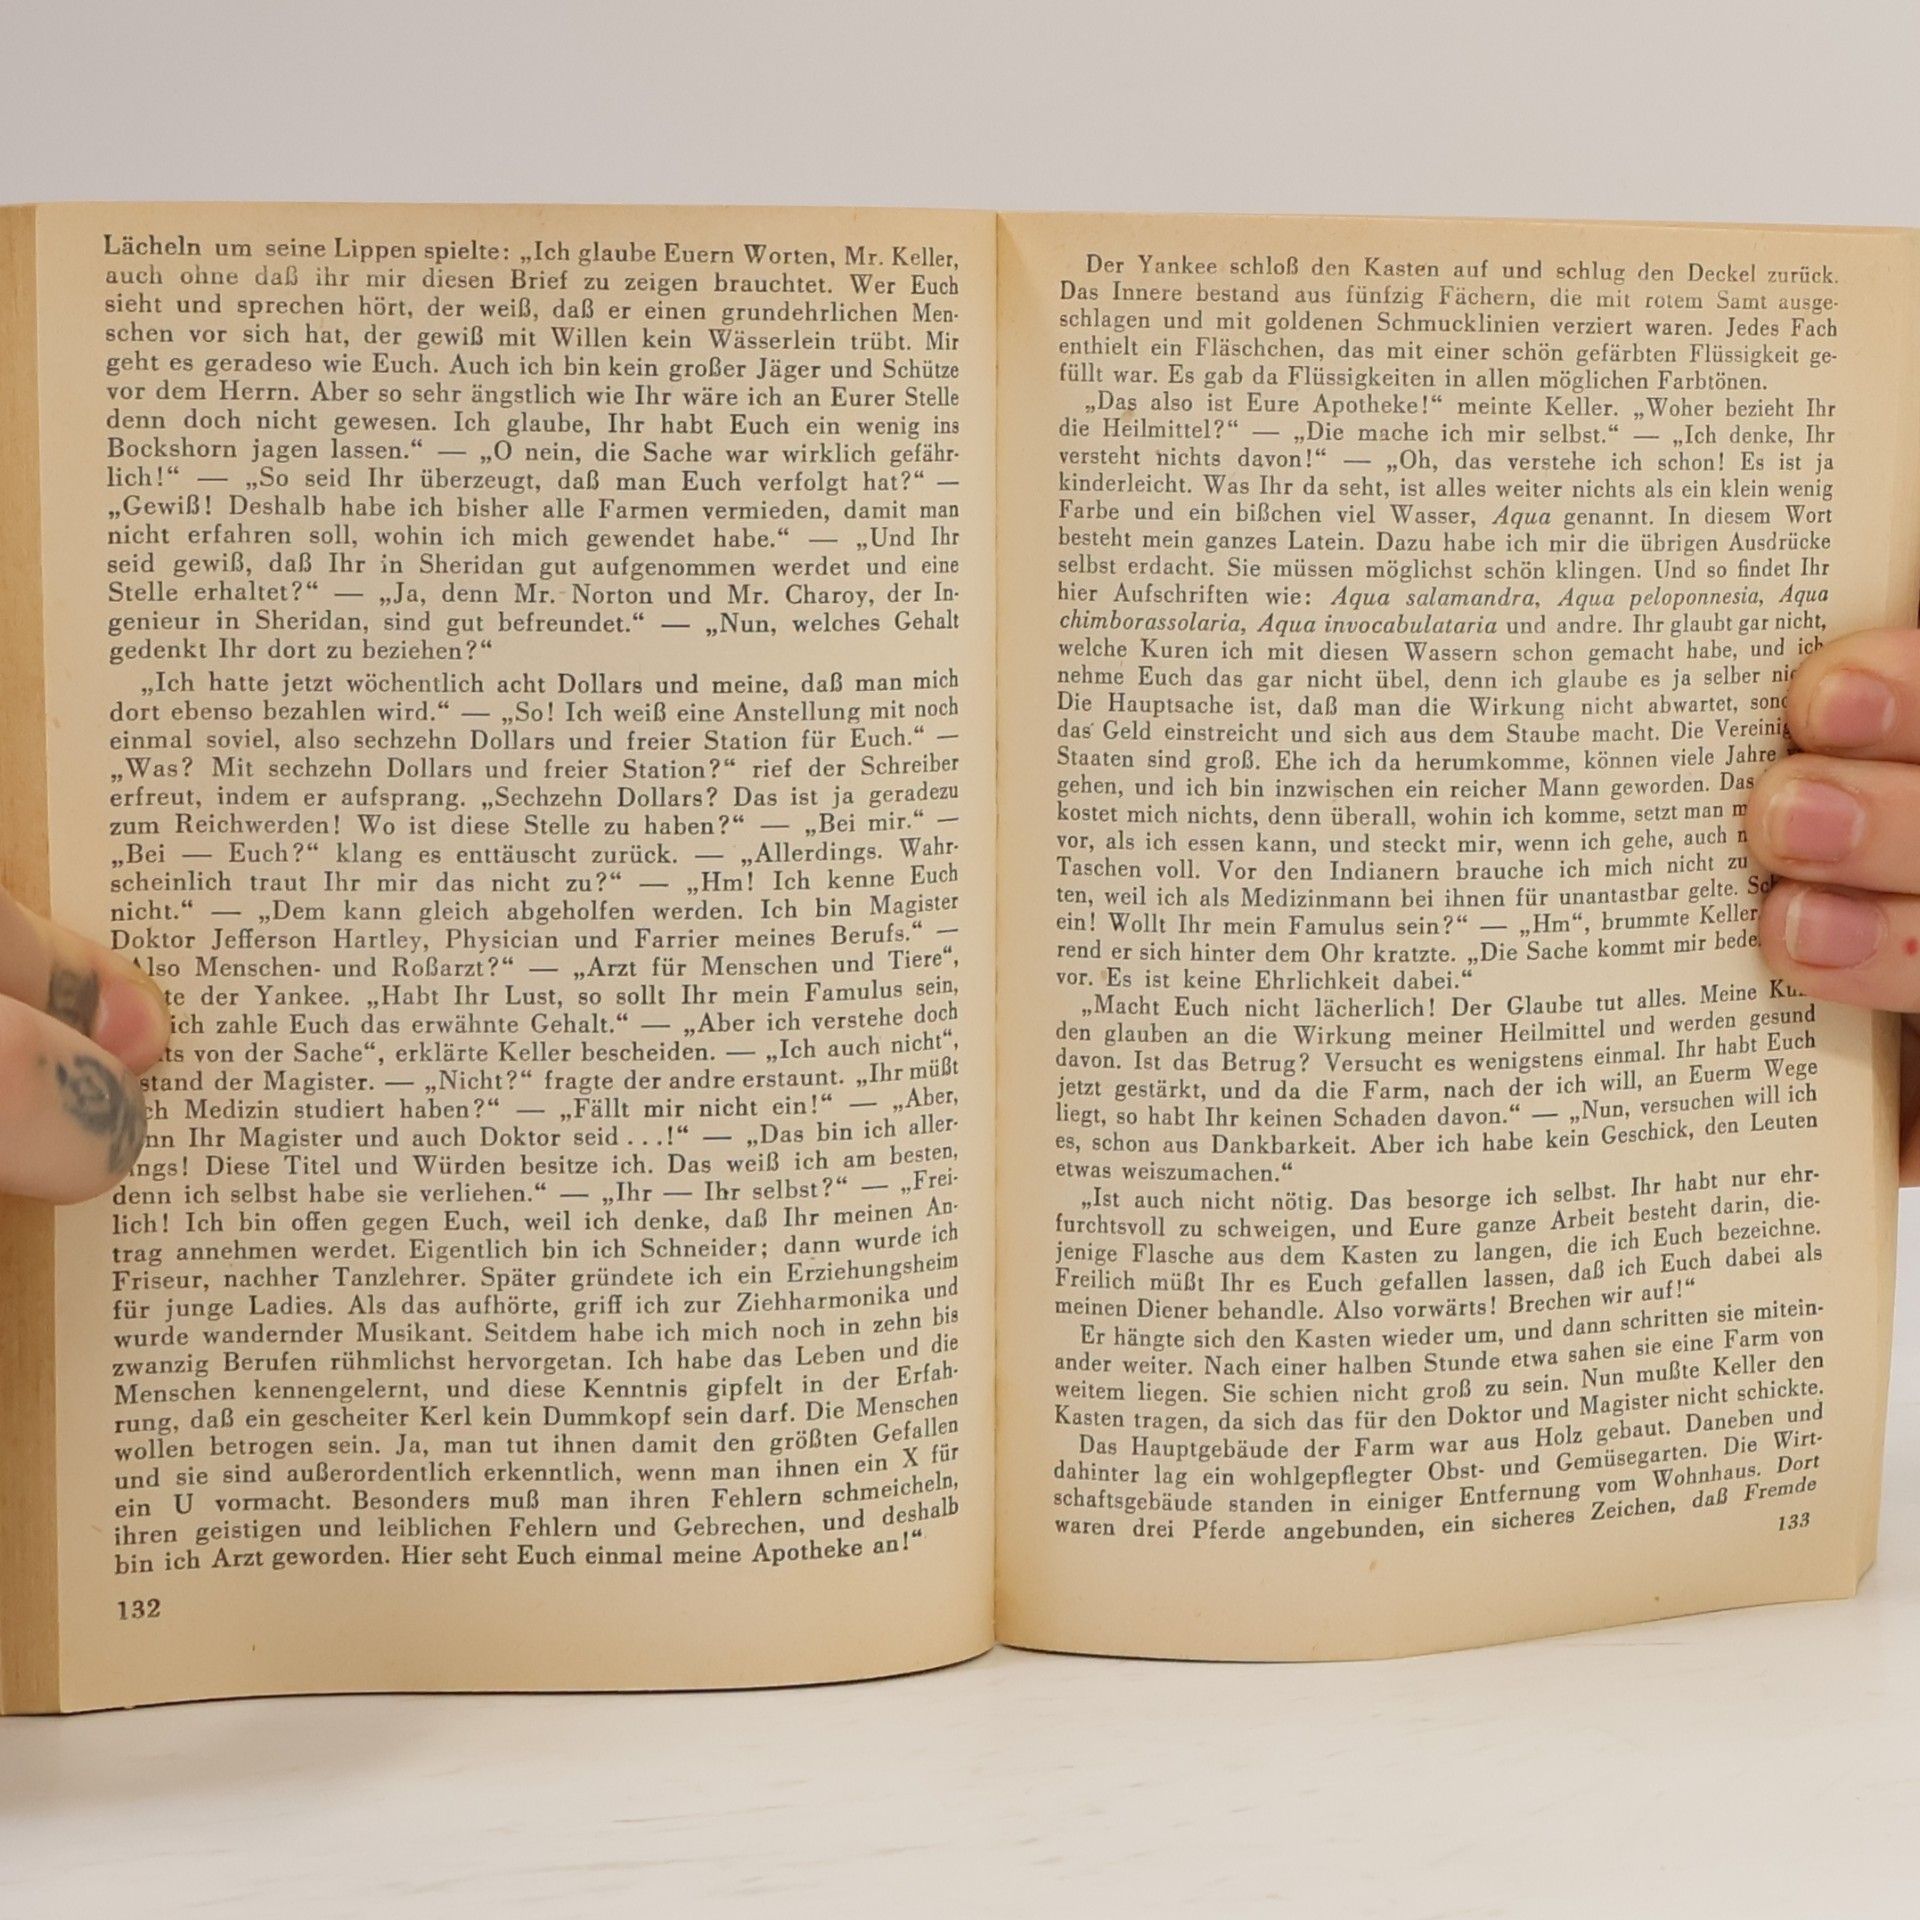 Lächeln um seine Lippen spielte: „Ich glaube Euern Worten, Mr. Keller,
auch ohne daß ihr mir diesen Brief zu zeigen brauchtet. Wer Euch
sieht und sprechen hört, der weiß, daß er einen grundehrlichen Men-
schen vor sich hat, der gewiß mit Willen kein Wässerlein trübt. Mir
geht es geradeso wie Euch. Auch ich bin kein großer Jäger und Schütze
vor dem Herrn. Aber so sehr ängstlich wie Ihr wäre ich an Eurer Stelle
denn doch nicht gewesen. Ich glaube, Ihr habt Euch ein wenig ins
Bockshorn jagen lassen.“ — „O nein, die Sache war wirklich gefähr-
lich!“ — „So seid Ihr überzeugt, daß man Euch verfolgt hat?“ —
„Gewiß! Deshalb habe ich bisher alle Farmen vermieden, damit man
nicht erfahren soll, wohin ich mich gewendet habe.“ — „Und Ihr
seid gewiß, daß Ihr in Sheridan gut aufgenommen werdet und eine
Stelle erhaltet?“ — „Ja, denn Mr. Norton und Mr. Charoy, der In-
genieur in Sheridan, sind gut befreundet.“ — „Nun, welches Gehalt
gedenkt Ihr dort zu beziehen?“
„Ich hatte jetzt wöchentlich acht Dollars und meine, daß man mich
dort ebenso bezahlen wird.“ — „So! Ich weiß eine Anstellung mit noch
einmal soviel, also sechzehn Dollars und freier Station für Euch.“ —
„Was? Mit sechzehn Dollars und freier Station?“ rief der Schreiber
erfreut, indem er aufsprang. „Sechzehn Dollars? Das ist ja geradezu
zum Reichwerden! Wo ist diese Stelle zu haben?“ — „Bei mir.“ —
„Bei — Euch?“ klang es enttäuscht zurück. — „Allerdings. Wahr-
scheinlich traut Ihr mir das nicht zu?“ — „Hm! Ich kenne Euch
nicht.“ — „Dem kann gleich abgeholfen werden. Ich bin Magister
Doktor Jefferson Hartley, Physician und Farrier meines Berufs.“ —
Also Menschen- und Roßarzt?“ — „Arzt für Menschen und Tiere“,
der Yankee. „Habt Ihr Lust, so sollt Ihr mein Famulus sein,
ich zahle Euch das erwähnte Gehalt.“ — „Aber ich verstehe doch
von der Sache“, erklärte Keller bescheiden. — „Ich auch nicht“,
der Magister. — „Nicht?“ fragte der andre erstaunt. „Ihr müßt
Medizin studiert haben?“ — „Fällt mir nicht ein!“ — „Aber,
Ihr Magister und auch Doktor seid ...!“ — „Das bin ich aller-
Diese Titel und Würden besitze ich. Das weiß ich am besten,
denn ich selbst habe sie verliehen.“ — „Ihr — Ihr selbst?“ — „Frei-
lich! Ich bin offen gegen Euch, weil ich denke, daß Ihr meinen An-
trag annehmen werdet. Eigentlich bin ich Schneider; dann wurde ich
Friseur, nachher Tanzlehrer. Später gründete ich ein Erziehungsheim
für junge Ladies. Als das aufhörte, griff ich zur Ziehharmonika und
wurde wandernder Musikant. Seitdem habe ich mich noch in zehn bis
zwanzig Berufen rühmlichst hervorgetan. Ich habe das Leben und die
Menschen kennengelernt, und diese Kenntnis gipfelt in der Erfah-
rung, daß ein gescheiter Kerl kein Dummkopf sein darf. Die Menschen
wollen betrogen sein. Ja, man tut ihnen damit den größten Gefallen
und sie sind außerordentlich erkenntlich, wenn man ihnen ein X für
ein U vormacht. Besonders muß man ihren Fehlern schmeicheln,
ihren geistigen und leiblichen Fehlern und Gebrechen, und deshalb
bin ich Arzt geworden. Hier seht Euch einmal meine Apotheke an!“
132
Der Yankee schloß den Kasten auf und schlug den Deckel zurück.
Das Innere bestand aus fünfzig Fächern, die mit rotem Samt ausge-
schlagen und mit goldenen Schmucklinien verziert waren. Jedes Fach
enthielt ein Fläschchen, das mit einer schön gefärbten Flüssigkeit ge-
füllt war. Es gab da Flüssigkeiten in allen möglichen Farbtönen.
„Das also ist Eure Apotheke!“ meinte Keller. „Woher bezieht Ihr
die Heilmittel?“ — „Die mache ich mir selbst.“ — „Ich denke, Ihr
versteht nichts davon!“ — „Oh, das verstehe ich schon! Es ist ja
kinderleicht. Was Ihr da seht, ist alles weiter nichts als ein klein wenig
Farbe und ein bißchen viel Wasser, Aqua genannt. In diesem Wort
besteht mein ganzes Latein. Dazu habe ich mir die übrigen Ausdrücke
selbst erdacht. Sie müssen möglichst schön klingen. Und so findet Ihr
hier Aufschriften wie: Aqua salamandra, Aqua peloponnesia, Aqua
chimborassolaria, Aqua invocabulataria und andre. Ihr glaubt gar nicht,
welche Kuren ich mit diesen Wassern schon gemacht habe, und ich
nehme Euch das gar nicht übel, denn ich glaube es ja selber
Die Hauptsache ist, daß man die Wirkung nicht abwartet,
das Geld einstreicht und sich aus dem Staube macht. Die
Staaten sind groß. Ehe ich da herumkomme, können viele Jahre
gehen, und ich bin inzwischen ein reicher Mann geworden. Das
kostet mich nichts, denn überall, wohin ich komme, setzt man
vor, als ich essen kann, und steckt mir, wenn ich gehe, auch
Taschen voll. Vor den Indianern brauche ich mich nicht zu
ten, weil ich als Medizinmann bei ihnen für unantastbar gelte.
ein! Wollt Ihr mein Famulus sein?“ — „Hm“, brummte Keller
rend er sich hinter dem Ohr kratzte. „Die Sache kommt mir
vor. Es ist keine Ehrlichkeit dabei.“
„Macht Euch nicht lächerlich! Der Glaube tut alles. Meine
den glauben an die Wirkung meiner Heilmittel und werden gesund
davon. Ist das Betrug? Versucht es wenigstens einmal. Ihr habt Euch
jetzt gestärkt, und da die Farm, nach der ich will, an Euerm Wege
liegt, so habt Ihr keinen Schaden davon.“ — „Nun, versuchen will ich
es, schon aus Dankbarkeit. Aber ich habe kein Geschick, den Leuten
etwas weiszumachen.“
„Ist auch nicht nötig. Das besorge ich selbst. Ihr habt nur ehr-
furchtsvoll zu schweigen, und Eure ganze Arbeit besteht darin, die-
jenige Flasche aus dem Kasten zu langen, die ich Euch bezeichne.
Freilich müßt Ihr es Euch gefallen lassen, daß ich Euch dabei als
meinen Diener behandle. Also vorwärts! Brechen wir auf!“
Er hängte sich den Kasten wieder um, und dann schritten sie mitein-
ander weiter. Nach einer halben Stunde etwa sahen sie eine Farm von
weitem liegen. Sie schien nicht groß zu sein. Nun mußte Keller den
Kasten tragen, da sich das für den Doktor und Magister nicht schickte.
Das Hauptgebäude der Farm war aus Holz gebaut. Daneben und
dahinter lag ein wohlgepflegter Obst- und Gemüsegarten. Die Wirt-
schaftsgebäude standen in einiger Entfernung vom Wohnhaus. Dort
waren drei Pferde angebunden, ein sicheres Zeichen, daß Fremde
133